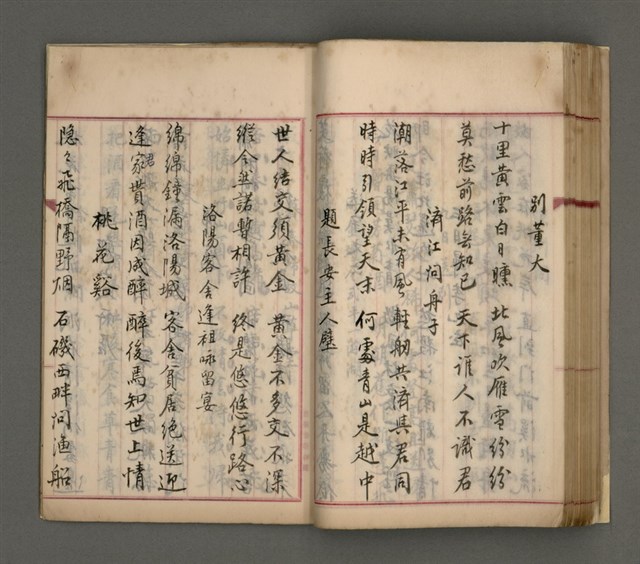 別董大
十里黃雲白日曛 北風吹雁雪紛紛
莫愁前路無知己 天下誰人不識君
濟江问舟子
潮落江平未有風 輕舠共濟與君同
時時引領望天末 何處青山是越中
題長安主人壁
世人结交須黃金 黃金不多交不深
縱令然諾暫相許 終是悠悠行路心
洛陽客舍逢祖咏留宴
綿綿鐘漏洛陽城 客舍貧居絶送迎
逢君貰酒因成醉 醉後焉知世上情
桃花谿
隠々飛橋隔野烟 石磯西畔问漁船